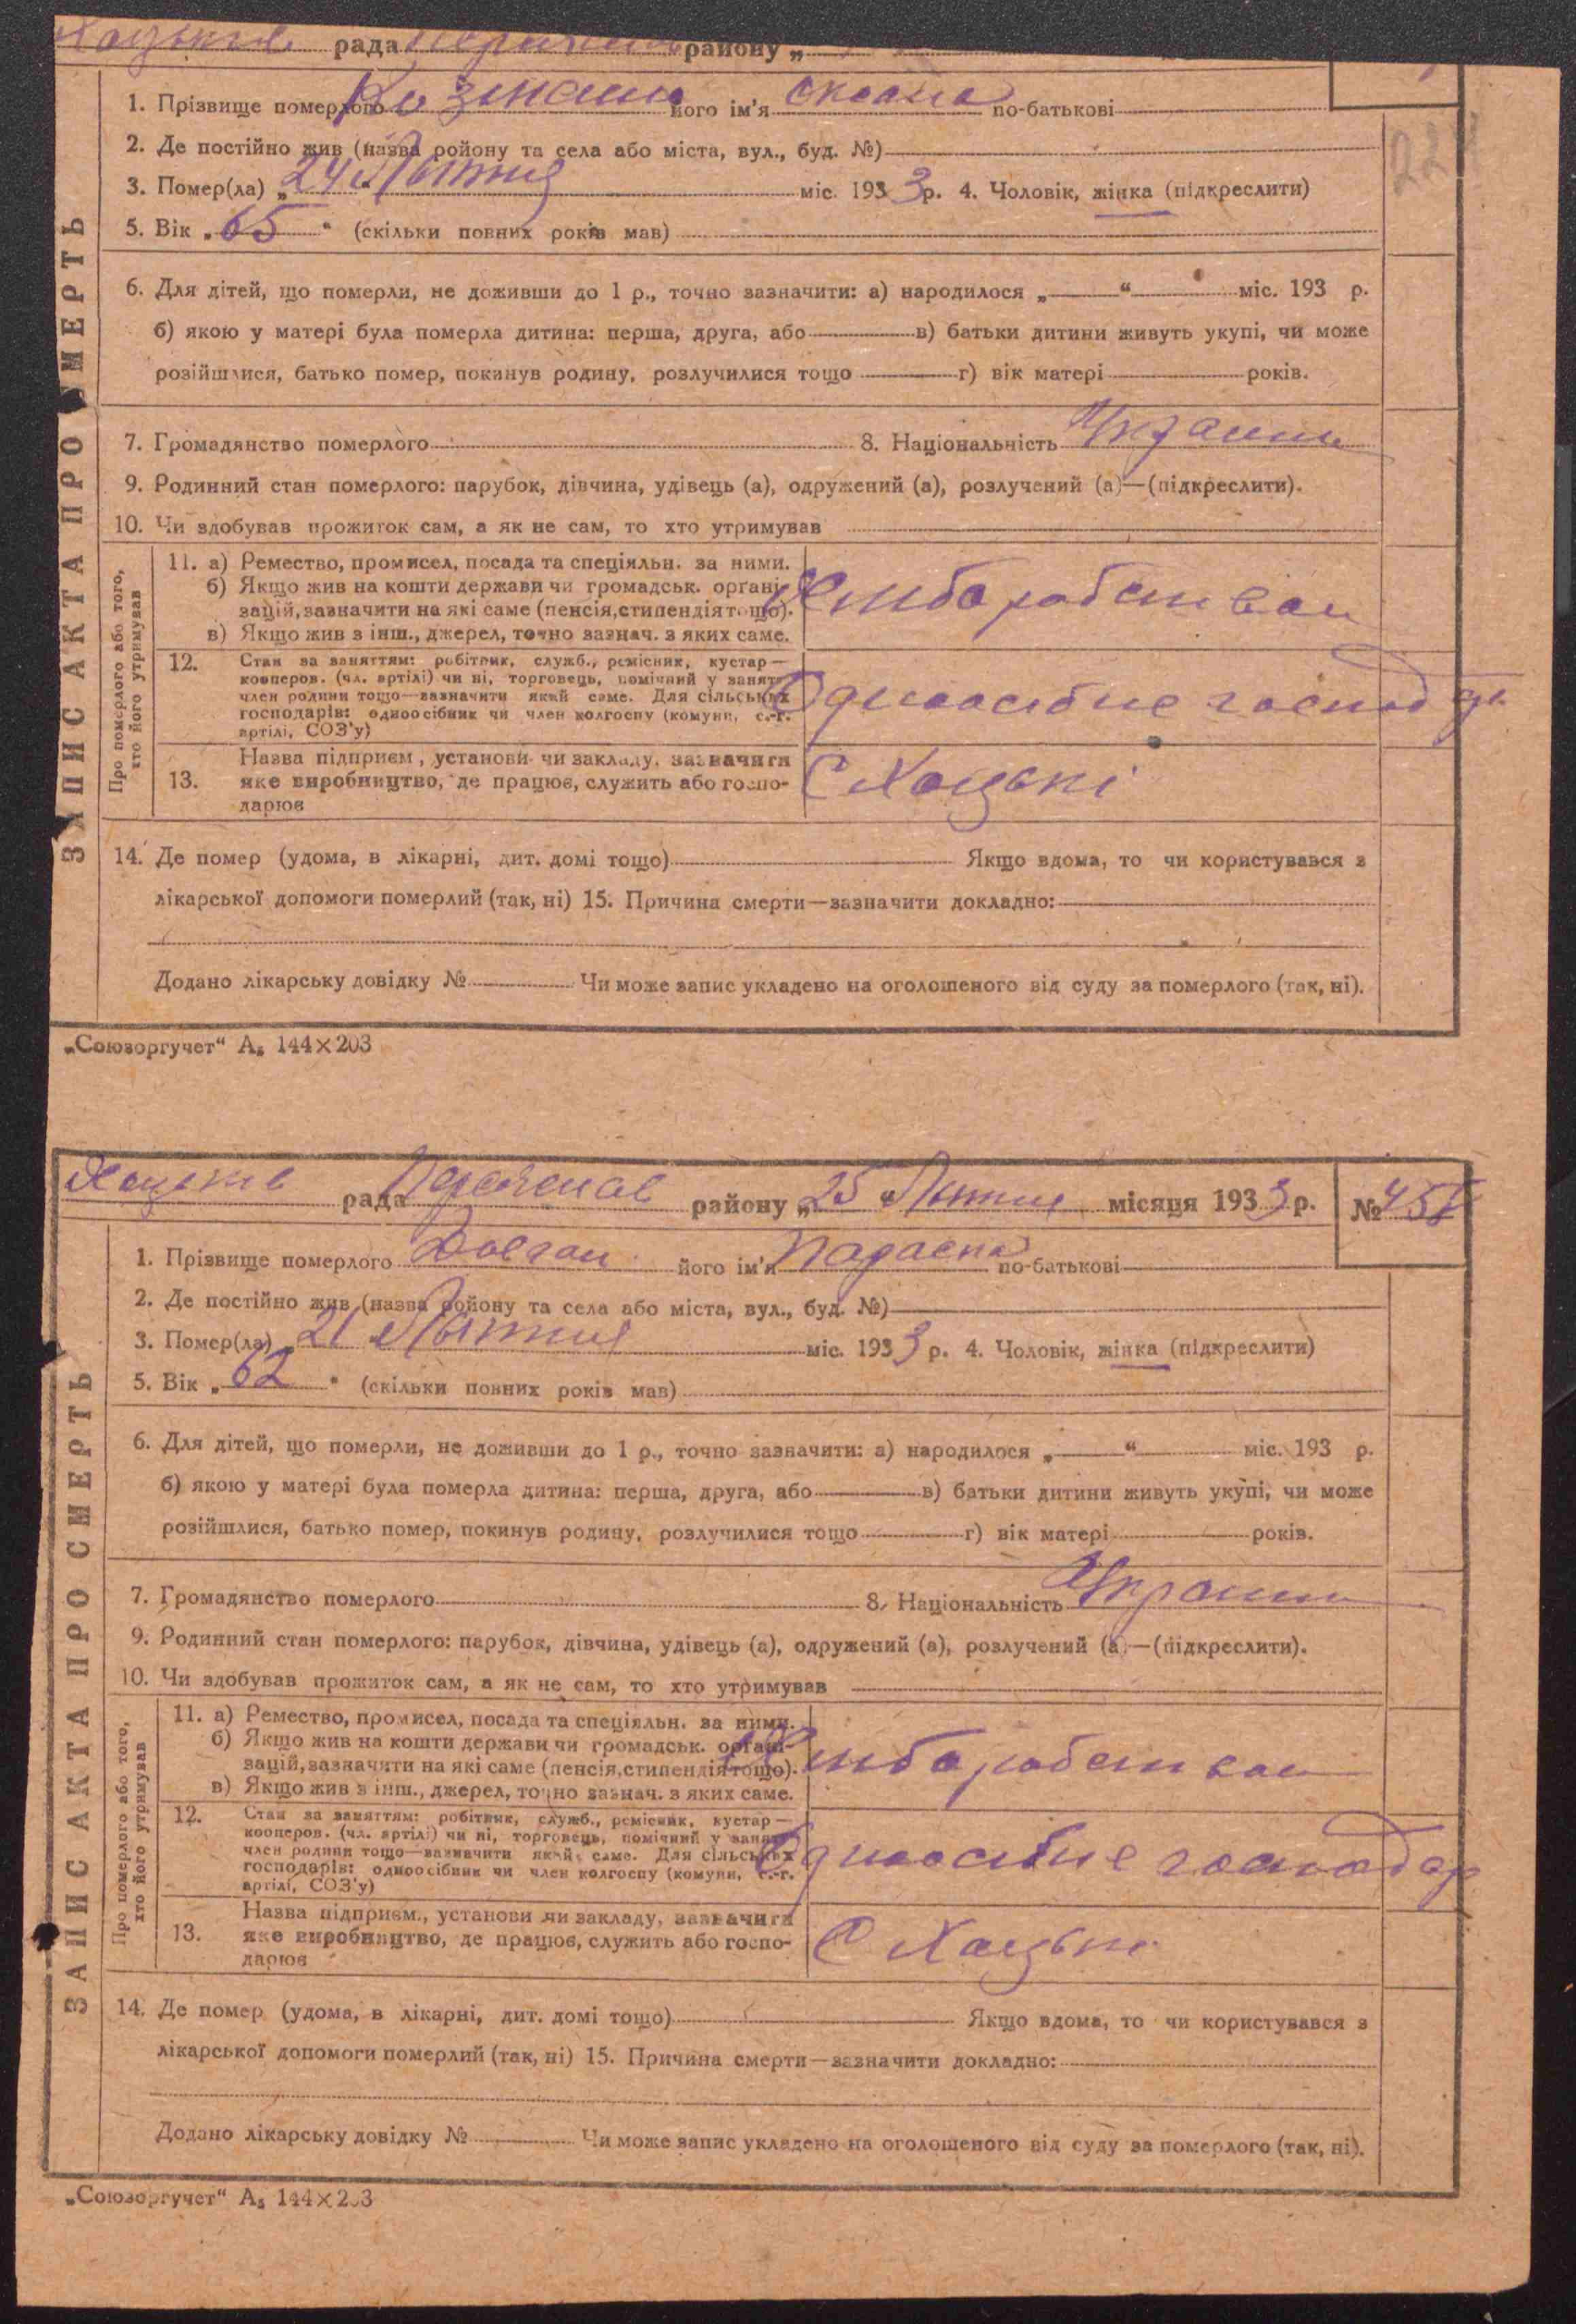 рада району „
1. Прізвище померлого його ім'я по-батькові
2. Де постійно жив (назва ройону та села або міста, вул., буд. №)
3. Помер(ла) „24“ Лютня міс. 1933 р. 4. Чоловік, жінка (підкреслити)
5. Вік „65“ (скільки повних років мав)
6. Для дітей, що померли, не доживши до 1 р., точно зазначити: а) народилося „ “ міс. 193 р.
б) якою у матері була померла дитина: перша, друга, або в) батьки дитини живуть укупі, чи може
розійшлися, батько помер, покинув родину, розлучилися тощо г) вік матері років.
7. Громадянство померлого 8. Національність
9. Родинний стан померлого: парубок, дівчина, удівець (а), одружений (а), розлучений (а)—(підкреслити).
10. Чи здобував прожиток сам, а як не сам, то хто утримував
ЗАПИС АКТА ПРО СМЕРТЬ
Про померлого або того,
хто його утримував
11. а) Ремество, промисел, посада та спеціяльн. за ними.
б) Якщо жив на кошти держави чи громадськ. органі-
зацій, зазначити на які саме (пенсія, стипендія тощо).
в) Якщо жив з інш., джерел, точно зазнач. з яких саме.
12. Стан за заняттям: робітник, служб., ремісник, кустар—
кооперов. (чл. артілі) чи ні, торговець, помічний у занят.
член родини тощо—вазначити який саме. Для сільських
господарів: одноосібник чи член колгоспу (комуни, с.-г.
артілі, СОЗ'у)
Одноосібне господар
Назва підприєм., установи чи закладу, зазначити
13. яке виробництво, де працює, служить або госпо-
дарює
С Хацьки
14. Де помер (удома, в лікарні, дит. домі тощо) Якщо вдома, то чи користувався з
лікарської допомоги померлий (так, ні) 15. Причина смерти—зазначити докладно:
Додано лікарську довідку № Чи може запис укладено на оголошеного від суду за померлого (так, ні).
„Союзоргучет“ А₅ 144×203
рада району „25“ Лютня місяця 1933 р. №
1. Прізвище померлого Довган його ім'я по-батькові
2. Де постійно жив (назва ройону та села або міста, вул., буд. №)
3. Помер(ла) „21“ Лютня міс. 1933 р. 4. Чоловік, жінка (підкреслити)
5. Вік „62“ (скільки повних років мав)
6. Для дітей, що померли, не доживши до 1 р., точно зазначити: а) народилося „ “ міс. 193 р.
б) якою у матері була померла дитина: перша, друга, або в) батьки дитини живуть укупі, чи може
розійшлися, батько помер, покинув родину, розлучилися тощо г) вік матері років.
7. Громадянство померлого 8. Національність
9. Родинний стан померлого: парубок, дівчина, удівець (а), одружений (а), розлучений (а)—(підкреслити).
10. Чи здобував прожиток сам, а як не сам, то хто утримував
ЗАПИС АКТА ПРО СМЕРТЬ
Про померлого або того,
хто його утримував
11. а) Ремество, промисел, посада та спеціяльн. за ними.
б) Якщо жив на кошти держави чи громадськ. органі-
зацій, зазначити на які саме (пенсія, стипендія тощо).
в) Якщо жив з інш., джерел, точно зазнач. з яких саме.
12. Стан за заняттям: робітник, служб., ремісник, кустар—
кооперов. (чл. артілі) чи ні, торговець, помічний у занят.
член родини тощо—вазначити який саме. Для сільських
господарів: одноосібник чи член колгоспу (комуни, с.-г.
артілі, СОЗ'у)
Одноосібне господар
Назва підприєм., установи чи закладу, зазначити
13. яке виробництво, де працює, служить або госпо-
дарює
С Хацьки
14. Де помер (удома, в лікарні, дит. домі тощо) Якщо вдома, то чи користувався з
лікарської допомоги померлий (так, ні) 15. Причина смерти—зазначити докладно:
Додано лікарську довідку № Чи може запис укладено на оголошеного від суду за померлого (так, ні).
„Союзоргучет“ А₅ 144×203